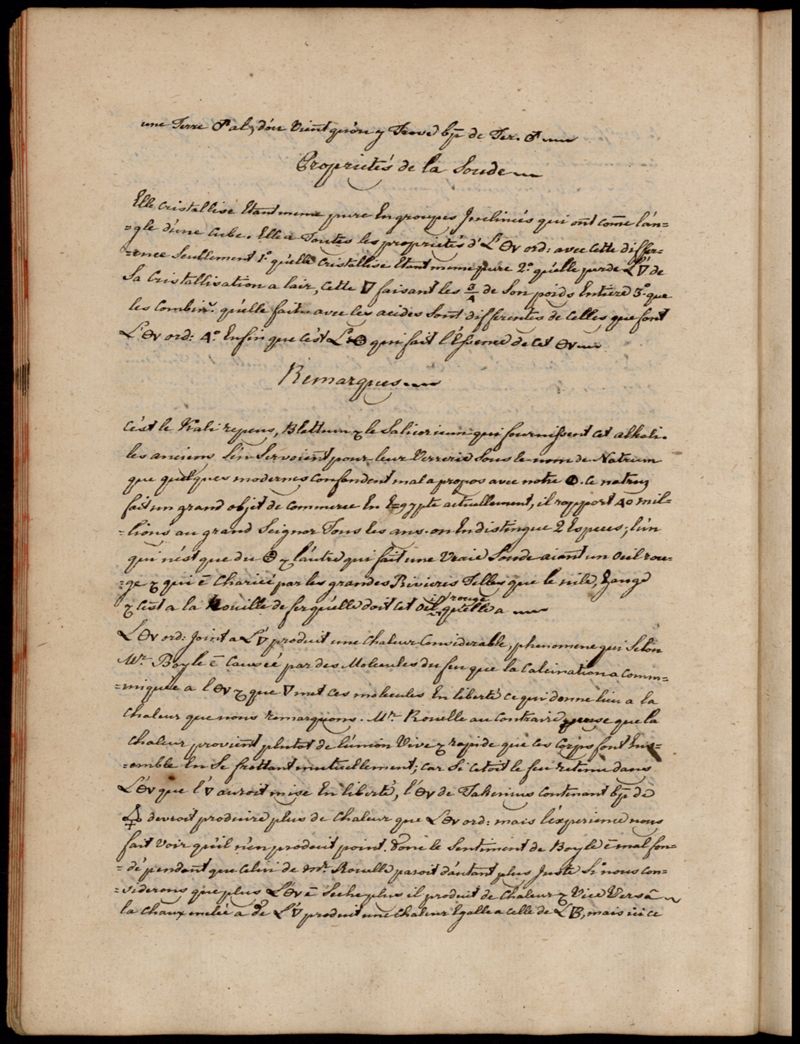 une Terre ♂ale, d'ou vient qu'on y Trouve bp de Ter. ♂
Proprietés de la Soude
Elle cristallise Etant meme pure En groupes Inclinés qui ont come l'an=
=gle d'une Cube. Elle a Toutes les proprietés d'L'⊖v ord: avec cette diffe=
=rence Seullement 1° qu'elle cristallise Etant meme pure 2° qu'elle perde L'▽ de
Sa cristallisation a l'air, Cette ▽ faisant les 3/4 de Son poids Entier 3° que
les Combin.ˢ qu'elle fait avec les acides Sont differentes de Celles que font
L'⊖v ord: 4° Enfin que c'est L' ⊖ qui fait l'Essence de cet ⊖v
Remarques
C'est le Kali repens, Blettum & le Salicorium qui fournissent cet alkali.
les anciens S'en Servoient pour leur Verrerie Sous le nom de Natrum
que quelques modernes confondent mal a propos avec notre . ce natrum
fait un grand objet de commerce En Egypte actuellement, il rapport 40 mil=
=lions au grand Seignor Tous les ans. on En distingue 2 Especes; l'un
qui n'est que du ⊖ & l'autre qui fait une Vraie Soude aiant un Oeil rou=
=ge & qui ē Chariée par les grandes Rivieres Telles que le nile, Gange
& c'est a la Rouille de fer qu'elle doit cet Oeil rouge qu'elle a
L'⊖v ord: Joint a L'▽ produit une Chaleur Considerable, phenomene qui Selon
Mr. Boyle ē Causée par des Molecules du feu que la Calcination a Comm=
=miquée a l'⊖v & que ▽ met ces molecules En liberté ce qui donne lieu a la
Chaleur que nous remarquons. Mr. Rouelle au Contraire pense que la
Chaleur provient plutot de l'union Vive & rapide que ces Corps font Ens=
=emble En Se frottant mutuellement; Car Si c'etoit le feu retenu dans
L'⊖v que l'▽ auroit mise En liberté, l'⊖v de Takenius Contenant bp de
🜍 devroit produire plus de Chaleur que L'⊖v ord: mais l'experience nous
fait voir qu'il n'en produit point. Donc le Sentiment de Boyle ē mal fon=
=dé pendent que Celui de mr. Rouelle paroit d'autant plus Juste Si nous Con=
=siderons que plus L'⊖v ē Seche plus il produit de Chaleur & Vice Versâ
la Chaux melée a de L'▽ produit une Chaleur Egalle a celle de L', mais ici ce